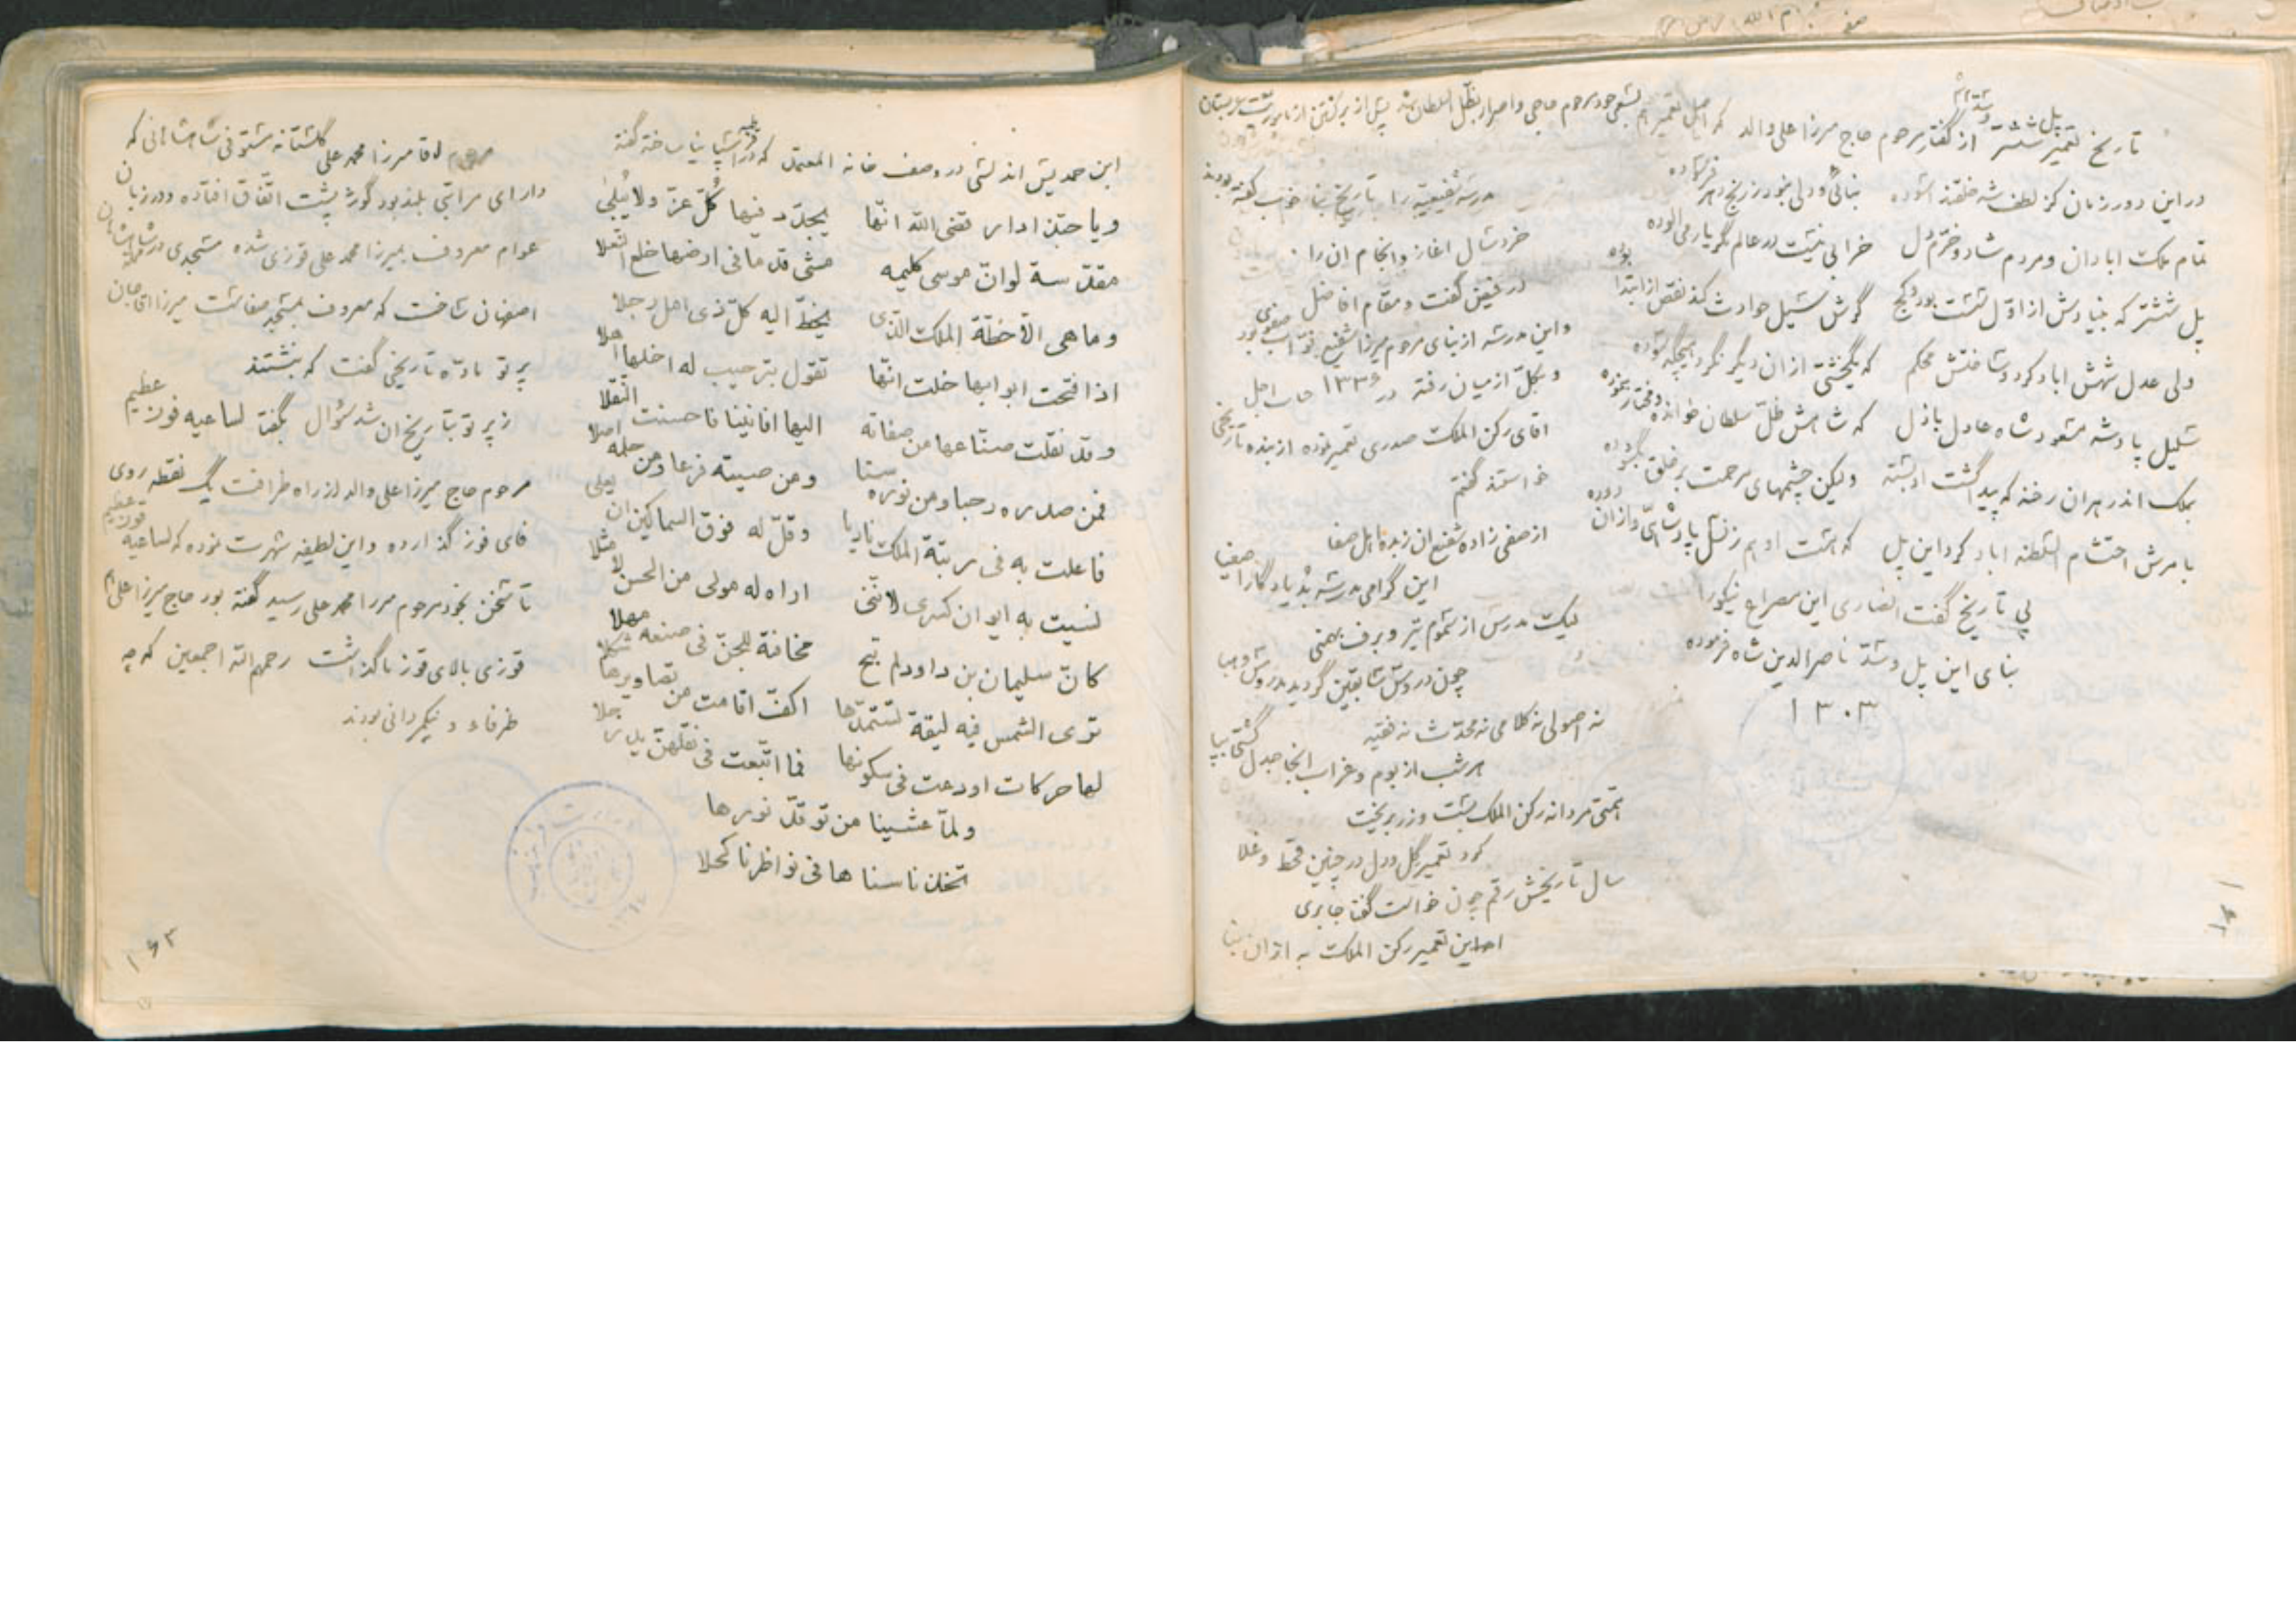 تاریخ تعمیر پل ششتر از گفتار مرحوم حاج میرزا علی والد که اصل تعمیر هم بسعی خود مرحوم حاجی و اصرار بظل السلطان شد پیش از برگشتن از ماموریت عربستان
در این دور زمان کز لطف شه خلقند آسوده
تمام ملک ابادان و مردم شاد و خرم دل خرابی نیست در عالم مگر یار می آلوده
پل ششتر که بنیادش از اول سست بود و کج گرش سیل حوادث کند نقص از ابتدا بوده
ولی عدل شهش اباد کرد و ساختش محکم که یکخشتی از ان دیگر نگردد هیچگه سوده
سلیل پادشه مسعود شاه عادل باذل که شاهش ظل سلطان خوانده
بملک اندر هران رخنه که پیدا گشت او بسته ولیکن چشمهای مرحمت بر خلق بگشوده
بامرش احتشام السلطنه اباد کرد این پل که هست او هم ز نسل پادشاهی و ازان دوده
پی تاریخ گفت انصاری این مصراع نیکو را
بنای این پل و سد ناصرالدین شاه فرموده
۱۳۰۳
مدرسه شفیعیه را تاریخ بنا خوب گفته بودند
خردسال اغاز و انجام ان را
در فیض گفت و مقام افاضل
و این مدرسه از بنای مرحوم میرزا شفیع
و بکل از میان رفته در ۱۳۳۶ حاصل
اقای رکن الملک صدری تعمیر نموده از بنده تاریخی
خواستند گفتم
از صفی زاده شفیع ان زبده اهل صفا
این گرامی مدرسه بد یادگار اصفیا
لیک مدرس از سموم تیر و برف بهمنی
چون دروس سابقین گردید مدروس و هبا
نه اصولی نه کلامی نه محدث نه فقیه
هر شب از بوم و غراب انجا جدل گشتی بپا
همتی مردانه رکن الملک بست و زر بریخت
کرد تعمیر گل و دل در چنین قحط و غلا
سال تاریخش رقم چون خواست گفتا جابری
این تعمیر رکن الملک به از ان بنا
ابن حمدیس اندلسی در وصف خانه المعتمد که در اسپانیا ساخته گفته
و یا حبّذا دار قضی الله انّها یجدّد فیها کلّ عزّ ولا یُبلی
مقدّسة لو انّ موسی کلیمه مشی قدما فی ارضها خلع النعلا
و ما هی الاّ خطّة الملک الذی یحطّ الیه کلّ ذی امل رحلا
اذا فتحت ابوابها خلت انّها تقول بترحیب له اخلها اهلا
و قد نقلت صنّاعها من صفاته الیها افانینا فاحسنت النقلا
فمن صدره رحبا و من نوره سنا و من صیته فرعا و من حلمه اصلا
فاعلت به فی رتبة الملک نادیا و قلّ له فوق السماکین ان یعلی
نسیت به ایوان کسری لانّنی اراه له مولی من الحسن لا مثلا
کانّ سلیمان بن داود لم تبح مخافته للجنّ فی صنعه مهلا
تری الشمس فیه لیقة تستمدّها اکفّ اقامت من تصاویرها شکلا
لها حرکات اودعت فی سکونها فما اتّبعت فی نقلهنّ ید رجلا
و لمّا عشینا من توقّد نورها
تخذنا سناها فی نواظرنا کحلا
مرحوم اقا میرزا محمد علی گلستانه مستوفی که
دارای مراتبی بلند بود گوژ پشت اتفاق افتاده و در زبان
عوام معروف بمیرزا محمد علی قوزی شده مسجدی در
اصفهان ساخت که معروف بمسجد صفاست میرزا
پرتو ماده تاریخی گفت که بنشتند
ز پرتو بتاریخ ان شد سؤال بگفتا لساعیه فوز عظیم
مرحوم حاج میرزا علی والد از راه ظرافت یک نقطه روی
فای فوز گذارده و این لطیفه شهرت نموده که لساعیه قوز عظیم
تا سخن بخود مرحوم میرزا محمد علی رسید گفته بود حاج میرزا علی
قوزی بالای قوز ما گذاشت رحمهم الله اجمعین که چه
ظرفاء و نیکمردانی بودند
۱۶۳